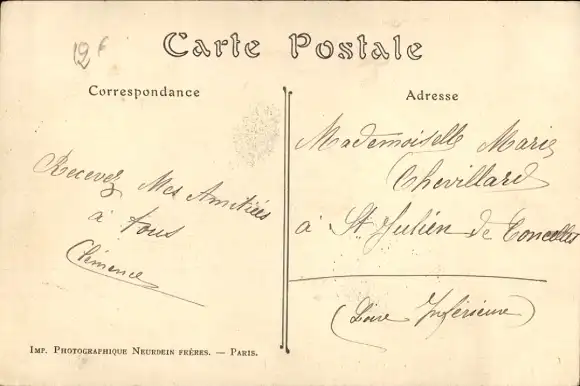 12 f
Carte Postale
Correspondance
Adresse
Recevez Mes Amitiés
à tous
Clémence
Mademoiselle Marie
Chevillard
à St Julien de Concelles
(Loire Inférieure)
Imp. Photographique Neurdein frères. — Paris.